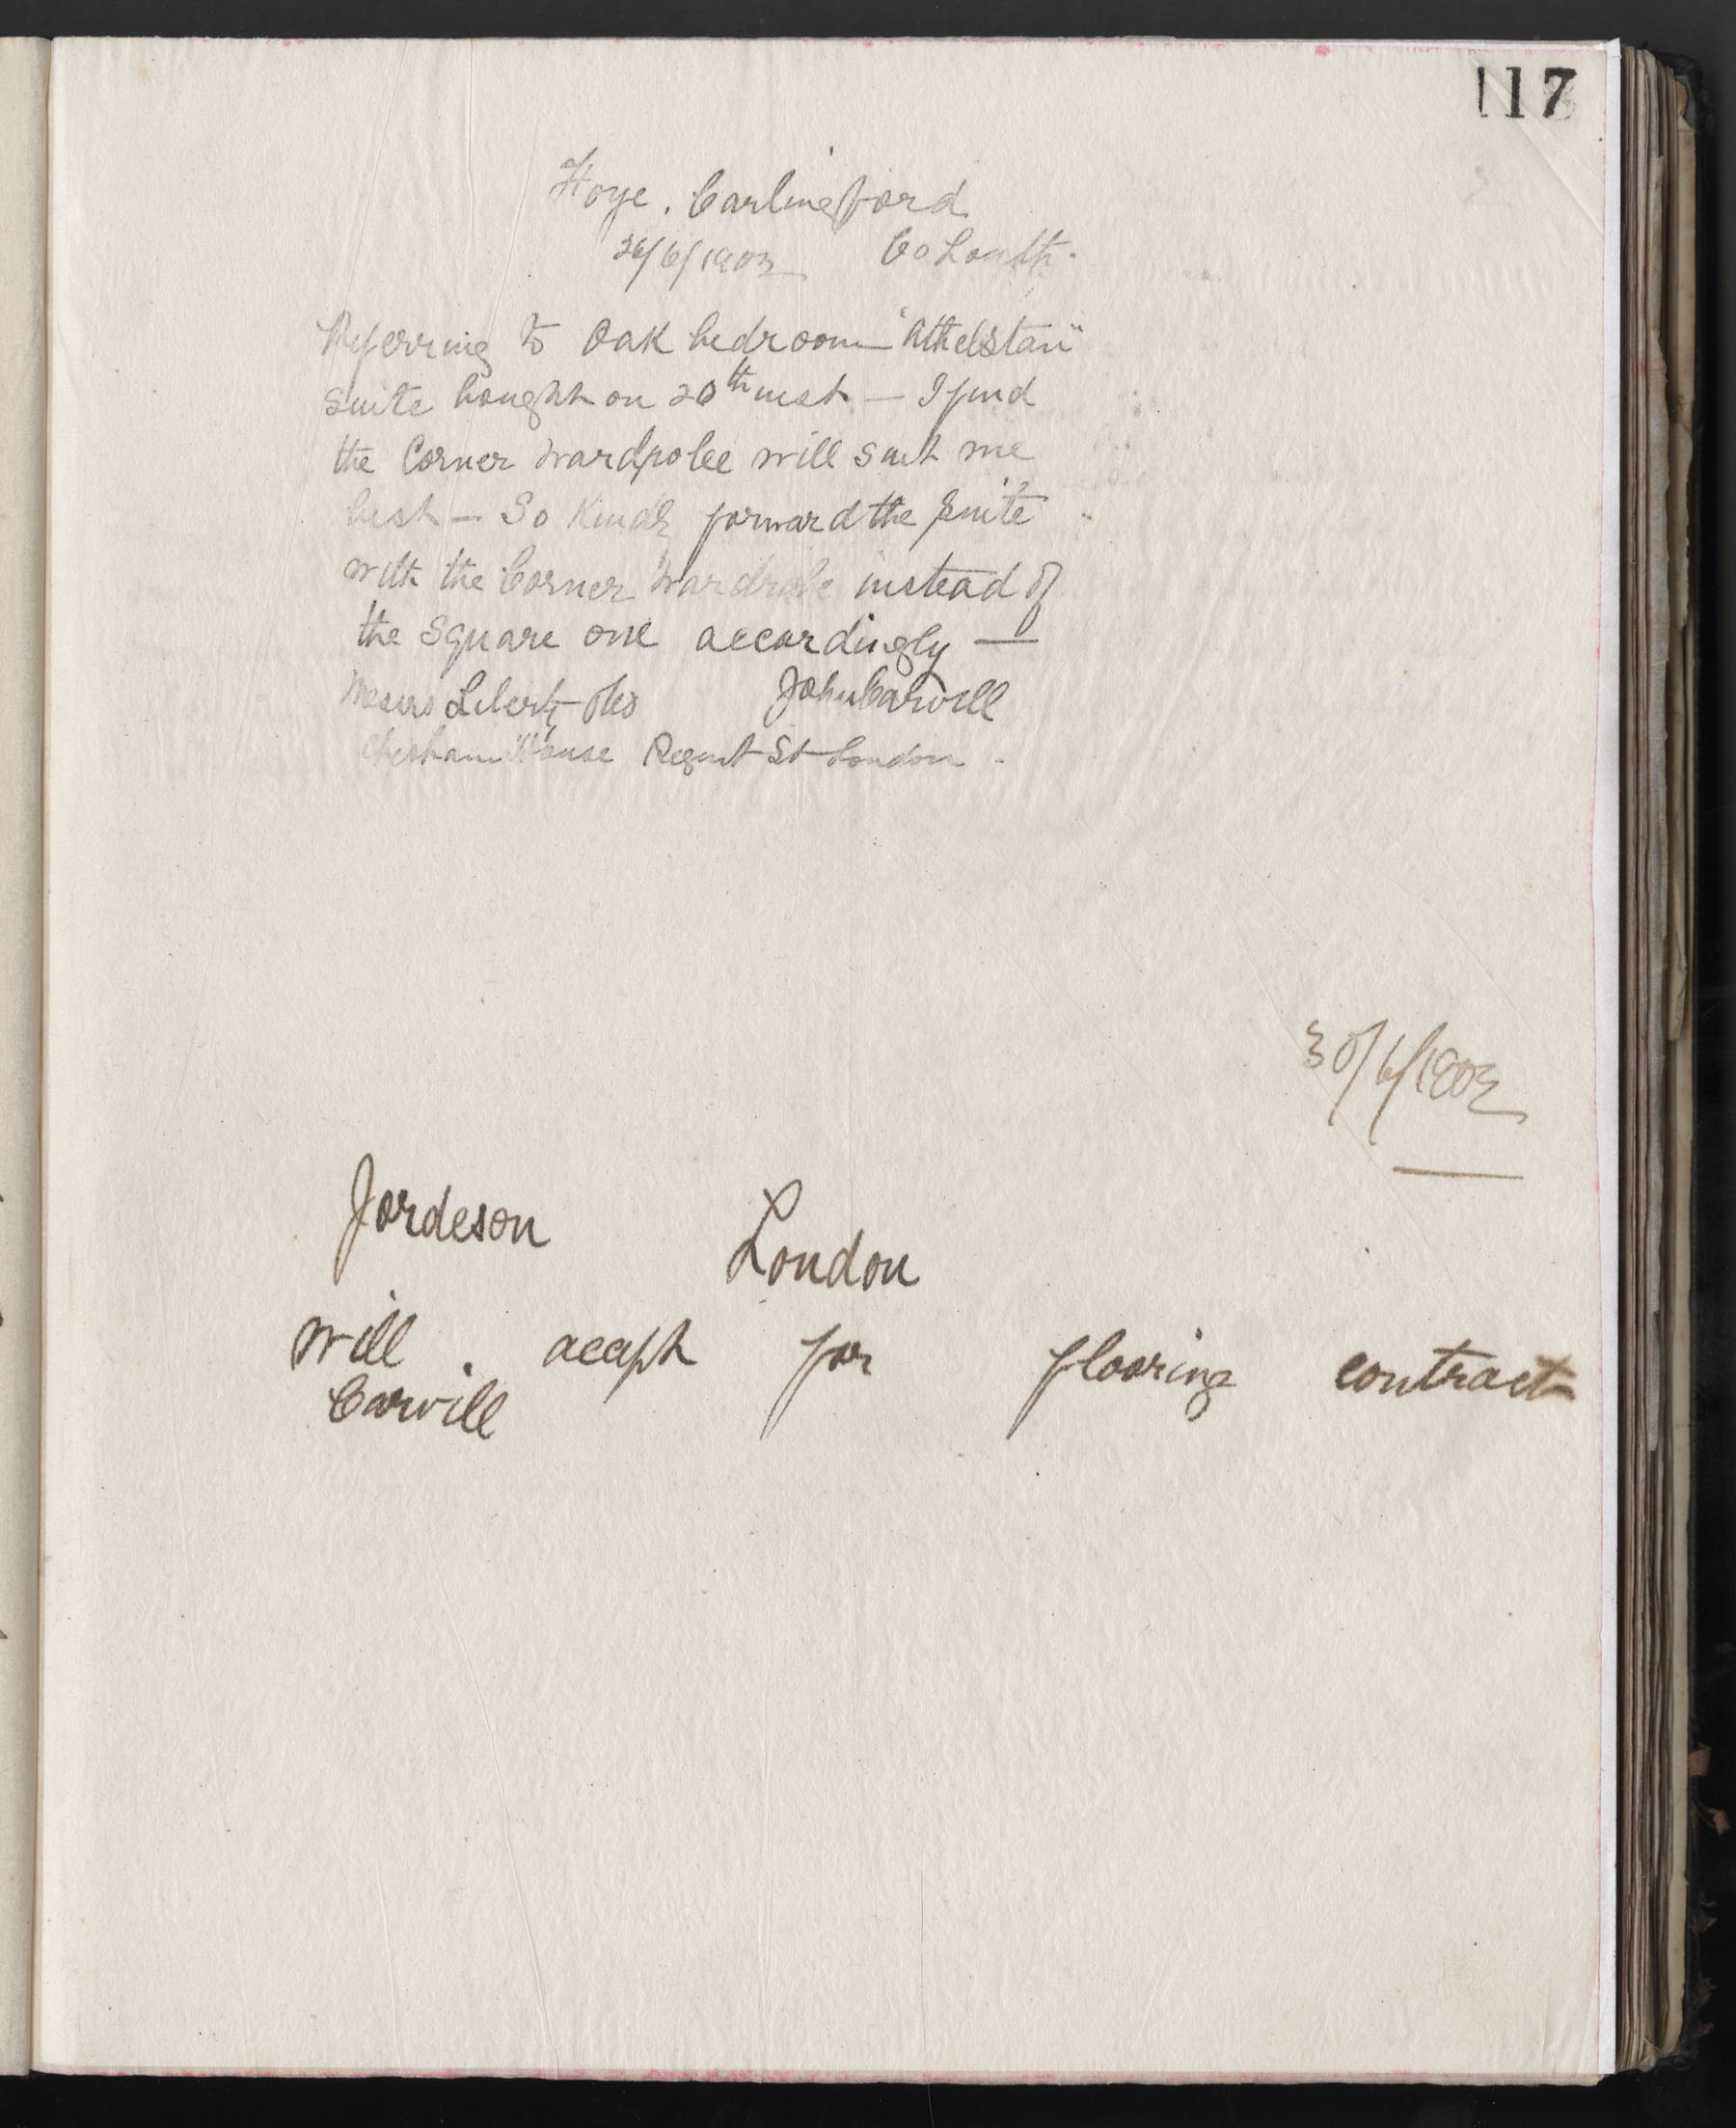 117
Hoye. Carlingford
26/6/1903 Co Louth.
Referring to Oak bedroom "Athelstan"
suite bought on 20th inst — I find
the Corner Wardrobe will suit me
best — So Kindly forward the suite
with the Corner Wardrobe instead of
the Square one accordingly —
Messrs Liberty John Carvill
Chesham House Regent St London.
30/6/1903
Jordeson London
Will. accept for flooring contract
Carvill